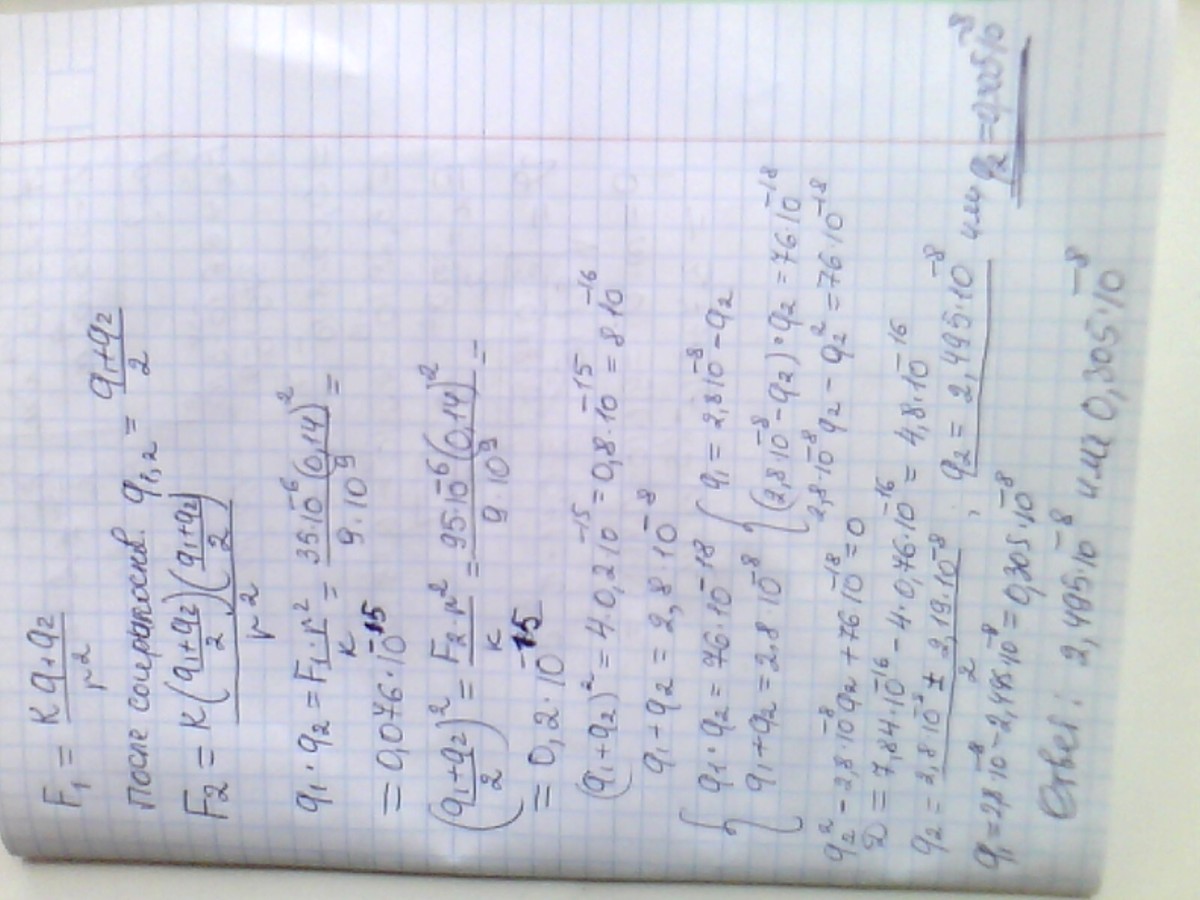 F₁ = K q₁ q₂ / r²
После соприкоснов. q₁,₂ = (q₁+q₂)/2
F₂ = K((q₁+q₂)/2)((q₁+q₂)/2) / r²
q₁ · q₂ = F₁·r²/K = 35·10⁻⁶(0,14)²/9·10⁹ =
= 0,076·10⁻¹⁵
((q₁+q₂)/2)² = F₂·r²/K = 95·10⁻⁶(0,14)²/9·10⁹ =
= 0,2·10⁻¹⁵
(q₁+q₂)² = 4·0,2·10⁻¹⁵ = 0,8·10⁻¹⁵ = 8·10⁻¹⁶
q₁+q₂ = 2,8·10⁻⁸
{ q₁·q₂ = 76·10⁻¹⁸ { q₁ = 2,8·10⁻⁸ - q₂
q₁+q₂ = 2.8·10⁻⁸ (2,8·10⁻⁸ - q₂)·q₂ = 76·10⁻¹⁸
2,8·10⁻⁸q₂ - q₂² = 76·10⁻¹⁸
q₂² - 2,8·10⁻⁸q₂ + 76·10⁻¹⁸ = 0
D = 7,84·10⁻¹⁶ - 4·0,76·10⁻¹⁶ = 4,8·10⁻¹⁶
q₂ = (2,8·10⁻⁸ ± 2,19·10⁻⁸)/2 ; q₂ = 2,495·10⁻⁸ или q₂ = 0,305·10⁻⁸
q₁ = 2,8·10⁻⁸ - 2,495·10⁻⁸ = 0,305·10⁻⁸
Ответ: 2,495·10⁻⁸ или 0,305·10⁻⁸